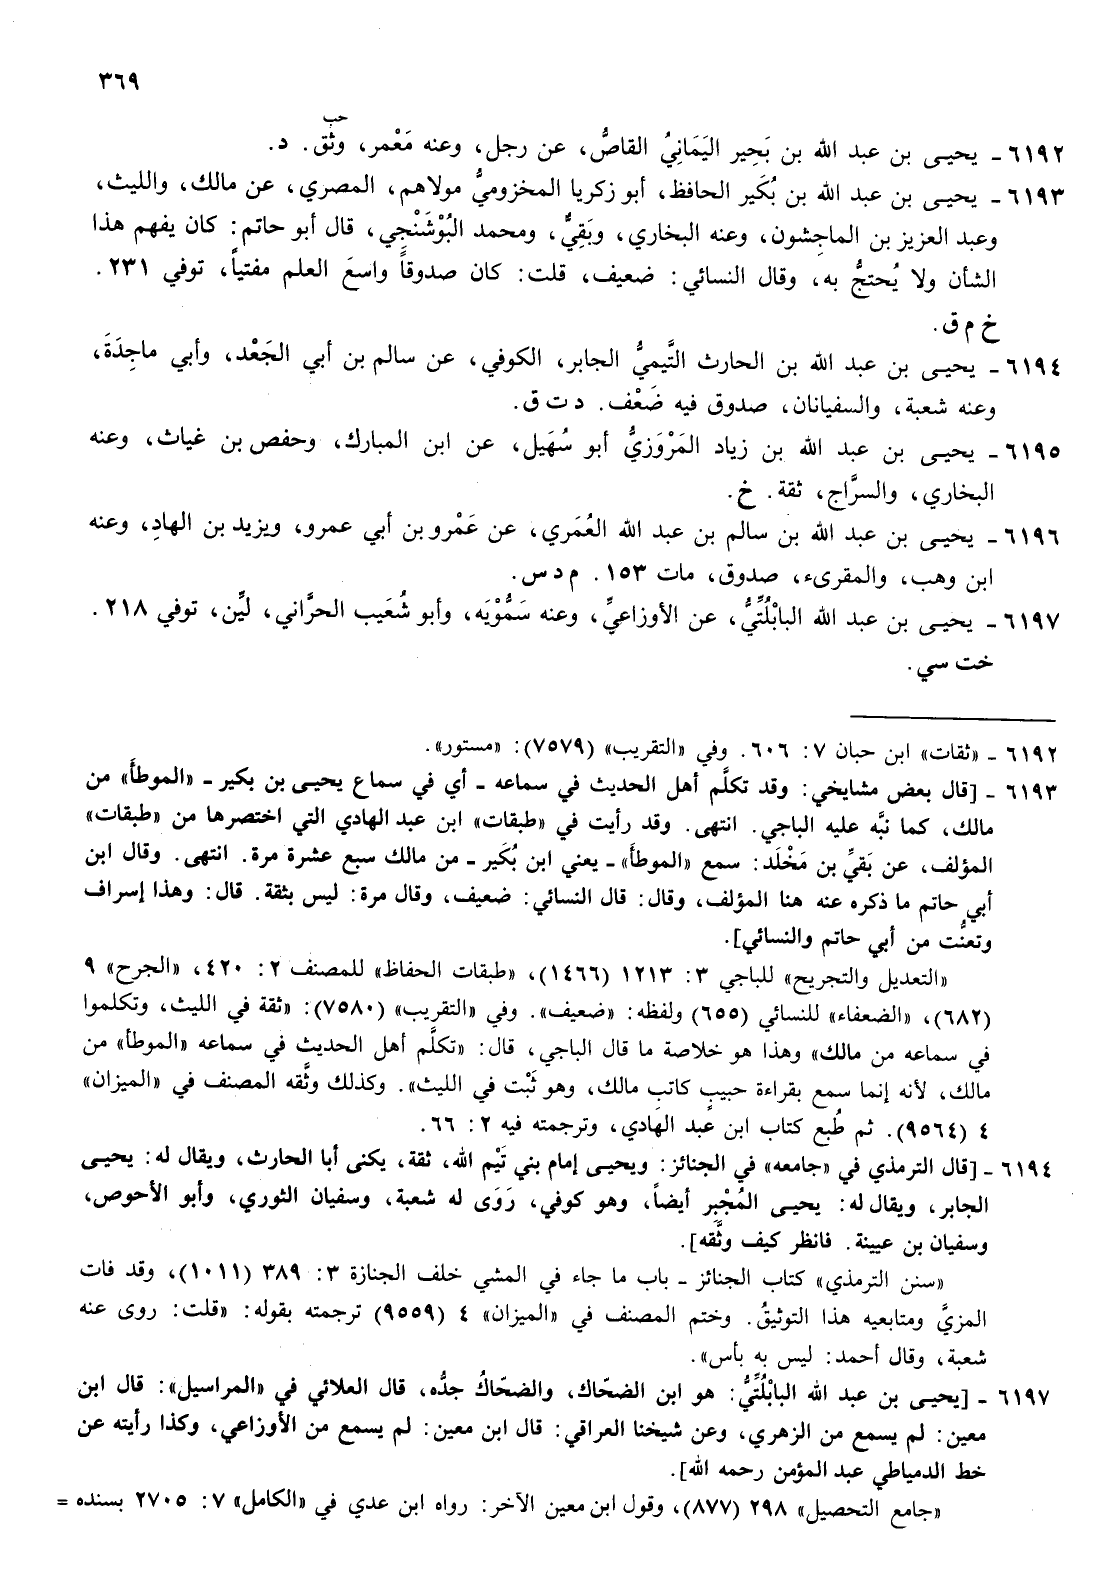 ٣٦٩
حب
٦١٩٢ ـ يحيى بن عبد الله بن بَحِير اليَمَانِيُ القاصُّ، عن رجل، وعنه مَعْمر، وثق. د.
٦١٩٣ ـ يحيى بن عبد الله بن بُكَير الحافظ، أبو زكريا المخزوميُّ مولاهم، المصري، عن مالك، والليث،
وعبد العزيز بن الماجِشون، وعنه البخاري، وبَقِيٌّ، ومحمد البُوْشَنْجِي، قال أبو حاتم: كان يفهم هذا
الشأن ولا يُحتجُّ به، وقال النسائي: ضعيف، قلت: كان صدوقاً واسعَ العلم مفتياً، توفي ٢٣١.
خ م ق.
٦١٩٤ ـ يحيى بن عبد الله بن الحارث التَّيميُّ الجابر، الكوفي، عن سالم بن أبي الجَعْد، وأبي ماجِدَةَ،
وعنه شعبة، والسفيانان، صدوق فيه ضَعْف. د ت ق.
٦١٩٥ ـ يحيى بن عبد الله بن زياد المَرْوَزيُّ أبو سُهَيل، عن ابن المبارك، وحفص بن غياث، وعنه
البخاري، والسرَّاج، ثقة. خ.
٦١٩٦ ـ يحيى بن عبد الله بن سالم بن عبد الله العُمَري، عن عَمْرو بن أبي عمرو، ويزيد بن الهادِ، وعنه
ابن وهب، والمقرىء، صدوق، مات ١٥٣. م د س.
٦١٩٧ ـ يحيى بن عبد الله البابْلُتِّيُّ، عن الأوزاعيِّ، وعنه سَمُّوْيَه، وأبو شُعَيب الحرَّاني، ليِّن، توفي ٢١٨.
خت سي.
٦١٩٢ ـ «ثقات» ابن حبان ٧: ٦٠٦. وفي «التقريب» (٧٥٧٩): «مستور».
٦١٩٣ ـ [قال بعض مشايخي: وقد تكلَّم أهل الحديث في سماعه ـ أي في سماع يحيى بن بكير ـ «الموطأ» من
مالك، كما نبَّه عليه الباجي. انتهى. وقد رأيت في «طبقات» ابن عبد الهادي التي اختصرها من «طبقات»
المؤلف، عن بَقيِّ بن مَخْلَد: سمع «الموطأ» ـ يعني ابن بُكَير ـ من مالك سبع عشرة مرة. انتهى. وقال ابن
أبي حاتم ما ذكره عنه هنا المؤلف، وقال: قال النسائي: ضعيف، وقال مرة: ليس بثقة. قال: وهذا إسراف
وتعنُّت من أبي حاتم والنسائي].
«التعديل والتجريح» للباجي ٣: ١٢١٣ (١٤٦٦)، «طبقات الحفاظ» للمصنف ٢: ٤٢٠، «الجرح» ٩
(٦٨٢)، «الضعفاء» للنسائي (٦٥٥) ولفظه: «ضعيف». وفي «التقريب» (٧٥٨٠): «ثقة في الليث، وتكلموا
في سماعه من مالك» وهذا هو خلاصة ما قال الباجي، قال: «تكلَّم أهل الحديث في سماعه «الموطأ» من
مالك، لأنه إنما سمع بقراءة حبيبٍ كاتبِ مالك، وهو ثَبْت في الليث». وكذلك وثَّقه المصنف في «الميزان»
٤ (٩٥٦٤). ثم طُبع كتاب ابن عبد الهادي، وترجمته فيه ٢: ٦٦.
٦١٩٤ ـ [قال الترمذي في «جامعه» في الجنائز: ويحيى إمام بني تَيْم الله، ثقة، يكنى أبا الحارث، ويقال له: يحيى
الجابر، ويقال له: يحيى المُجْبِر أيضاً، وهو كوفي، رَوَى له شعبة، وسفيان الثوري، وأبو الأحوص،
وسفيان بن عيينة. فانظر كيف وثَّقه].
«سنن الترمذي» كتاب الجنائز ـ باب ما جاء في المشي خلف الجنازة ٣: ٣٨٩ (١٠١١)، وقد فات
المزيَّ ومتابعيه هذا التوثيقُ. وختم المصنف في «الميزان» ٤ (٩٥٥٩) ترجمته بقوله: «قلت: روى عنه
شعبة، وقال أحمد: ليس به بأس».
٦١٩٧ ـ [يحيى بن عبد الله البابْلُتِّيُّ: هو ابن الضحّاك، والضحّاكُ جدُّه، قال العلائي في «المراسيل»: قال ابن
معين: لم يسمع من الزهري، وعن شيخنا العراقي: قال ابن معين: لم يسمع من الأوزاعي، وكذا رأيته عن
خط الدمياطي عبد المؤمن رحمه الله].
«جامع التحصيل» ٢٩٨ (٨٧٧)، وقول ابن معين الآخر: رواه ابن عدي في «الكامل» ٧: ٢٧٠٥ بسنده =